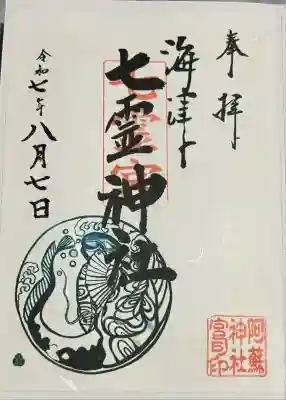 奉拝
海津
七霊神社
七霊宮
令和七年
八月七日
阿蘇
神社
宮司印